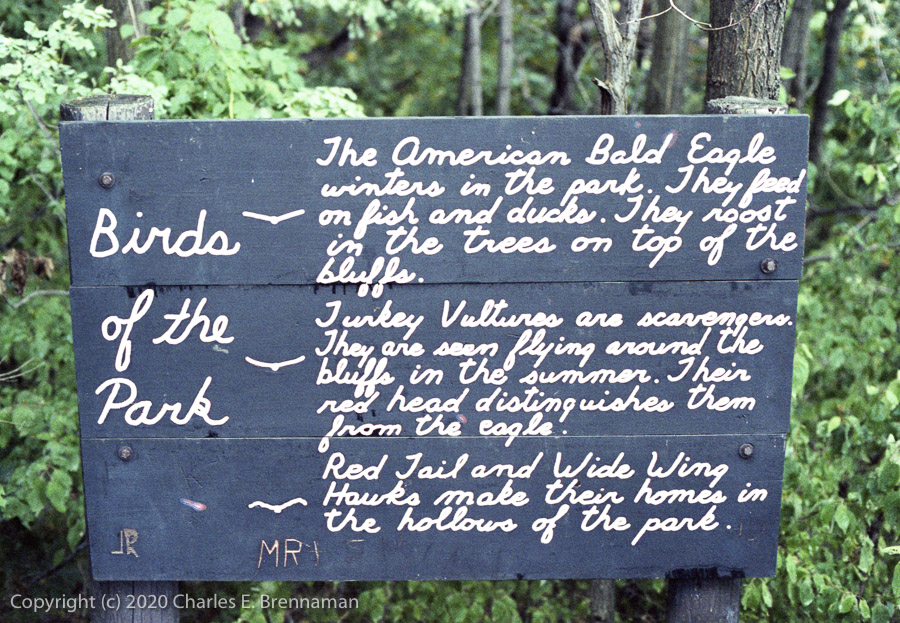 Birds
of the
Park
The American Bald Eagle
winters in the park. They feed
on fish and ducks. They roost
in the trees on top of the
bluffs.
Turkey Vultures are scavengers.
They are seen flying around the
bluffs in the summer. Their
red head distinguishes them
from the eagle.
Red Tail and Wide Wing
Hawks make their homes in
the hollows of the park.
JR
MR
Copyright (c) 2020 Charles E. Brennaman